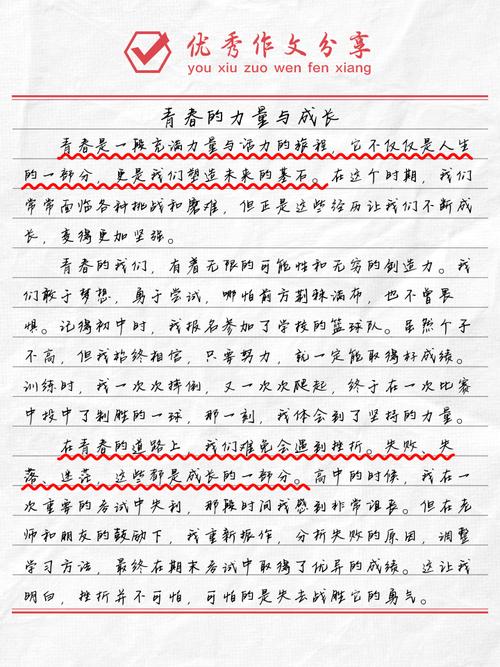 优秀作文分享
you xiu zuo wen fen xiang
青春的力量与成长
青春是一段充满力量与活力的旅程，它不仅仅是人生
的一部分，更是我们塑造未来的基石。在这个时期，我们
常常面临各种挑战和磨难，但正是这些经历让我们不断成
长，变得更加坚强。
青春的我们，有着无限的可能性和无穷的创造力。我
们敢于梦想，勇于尝试，哪怕前方荆棘满布，也不曾畏
惧。记得初中时，我报名参加了学校的篮球队。虽然个子
不高，但我始终相信，只要努力，就一定能取得好成绩。
训练时，我一次次摔倒，又一次次爬起，终于在一次比赛
中投中了制胜的一球，那一刻，我体会到了坚持的力量。
在青春的道路上，我们难免会遇到挫折。失败、失
落、迷茫，这些都是成长的一部分。高中的时候，我在一
次重要的考试中失利，那段时间我感到非常沮丧。但在老
师和朋友的鼓励下，我重新振作，分析失败的原因，调整
学习方法，最终在期末考试中取得了优异的成绩。这让我
明白，挫折并不可怕，可怕的是失去战胜它的勇气。